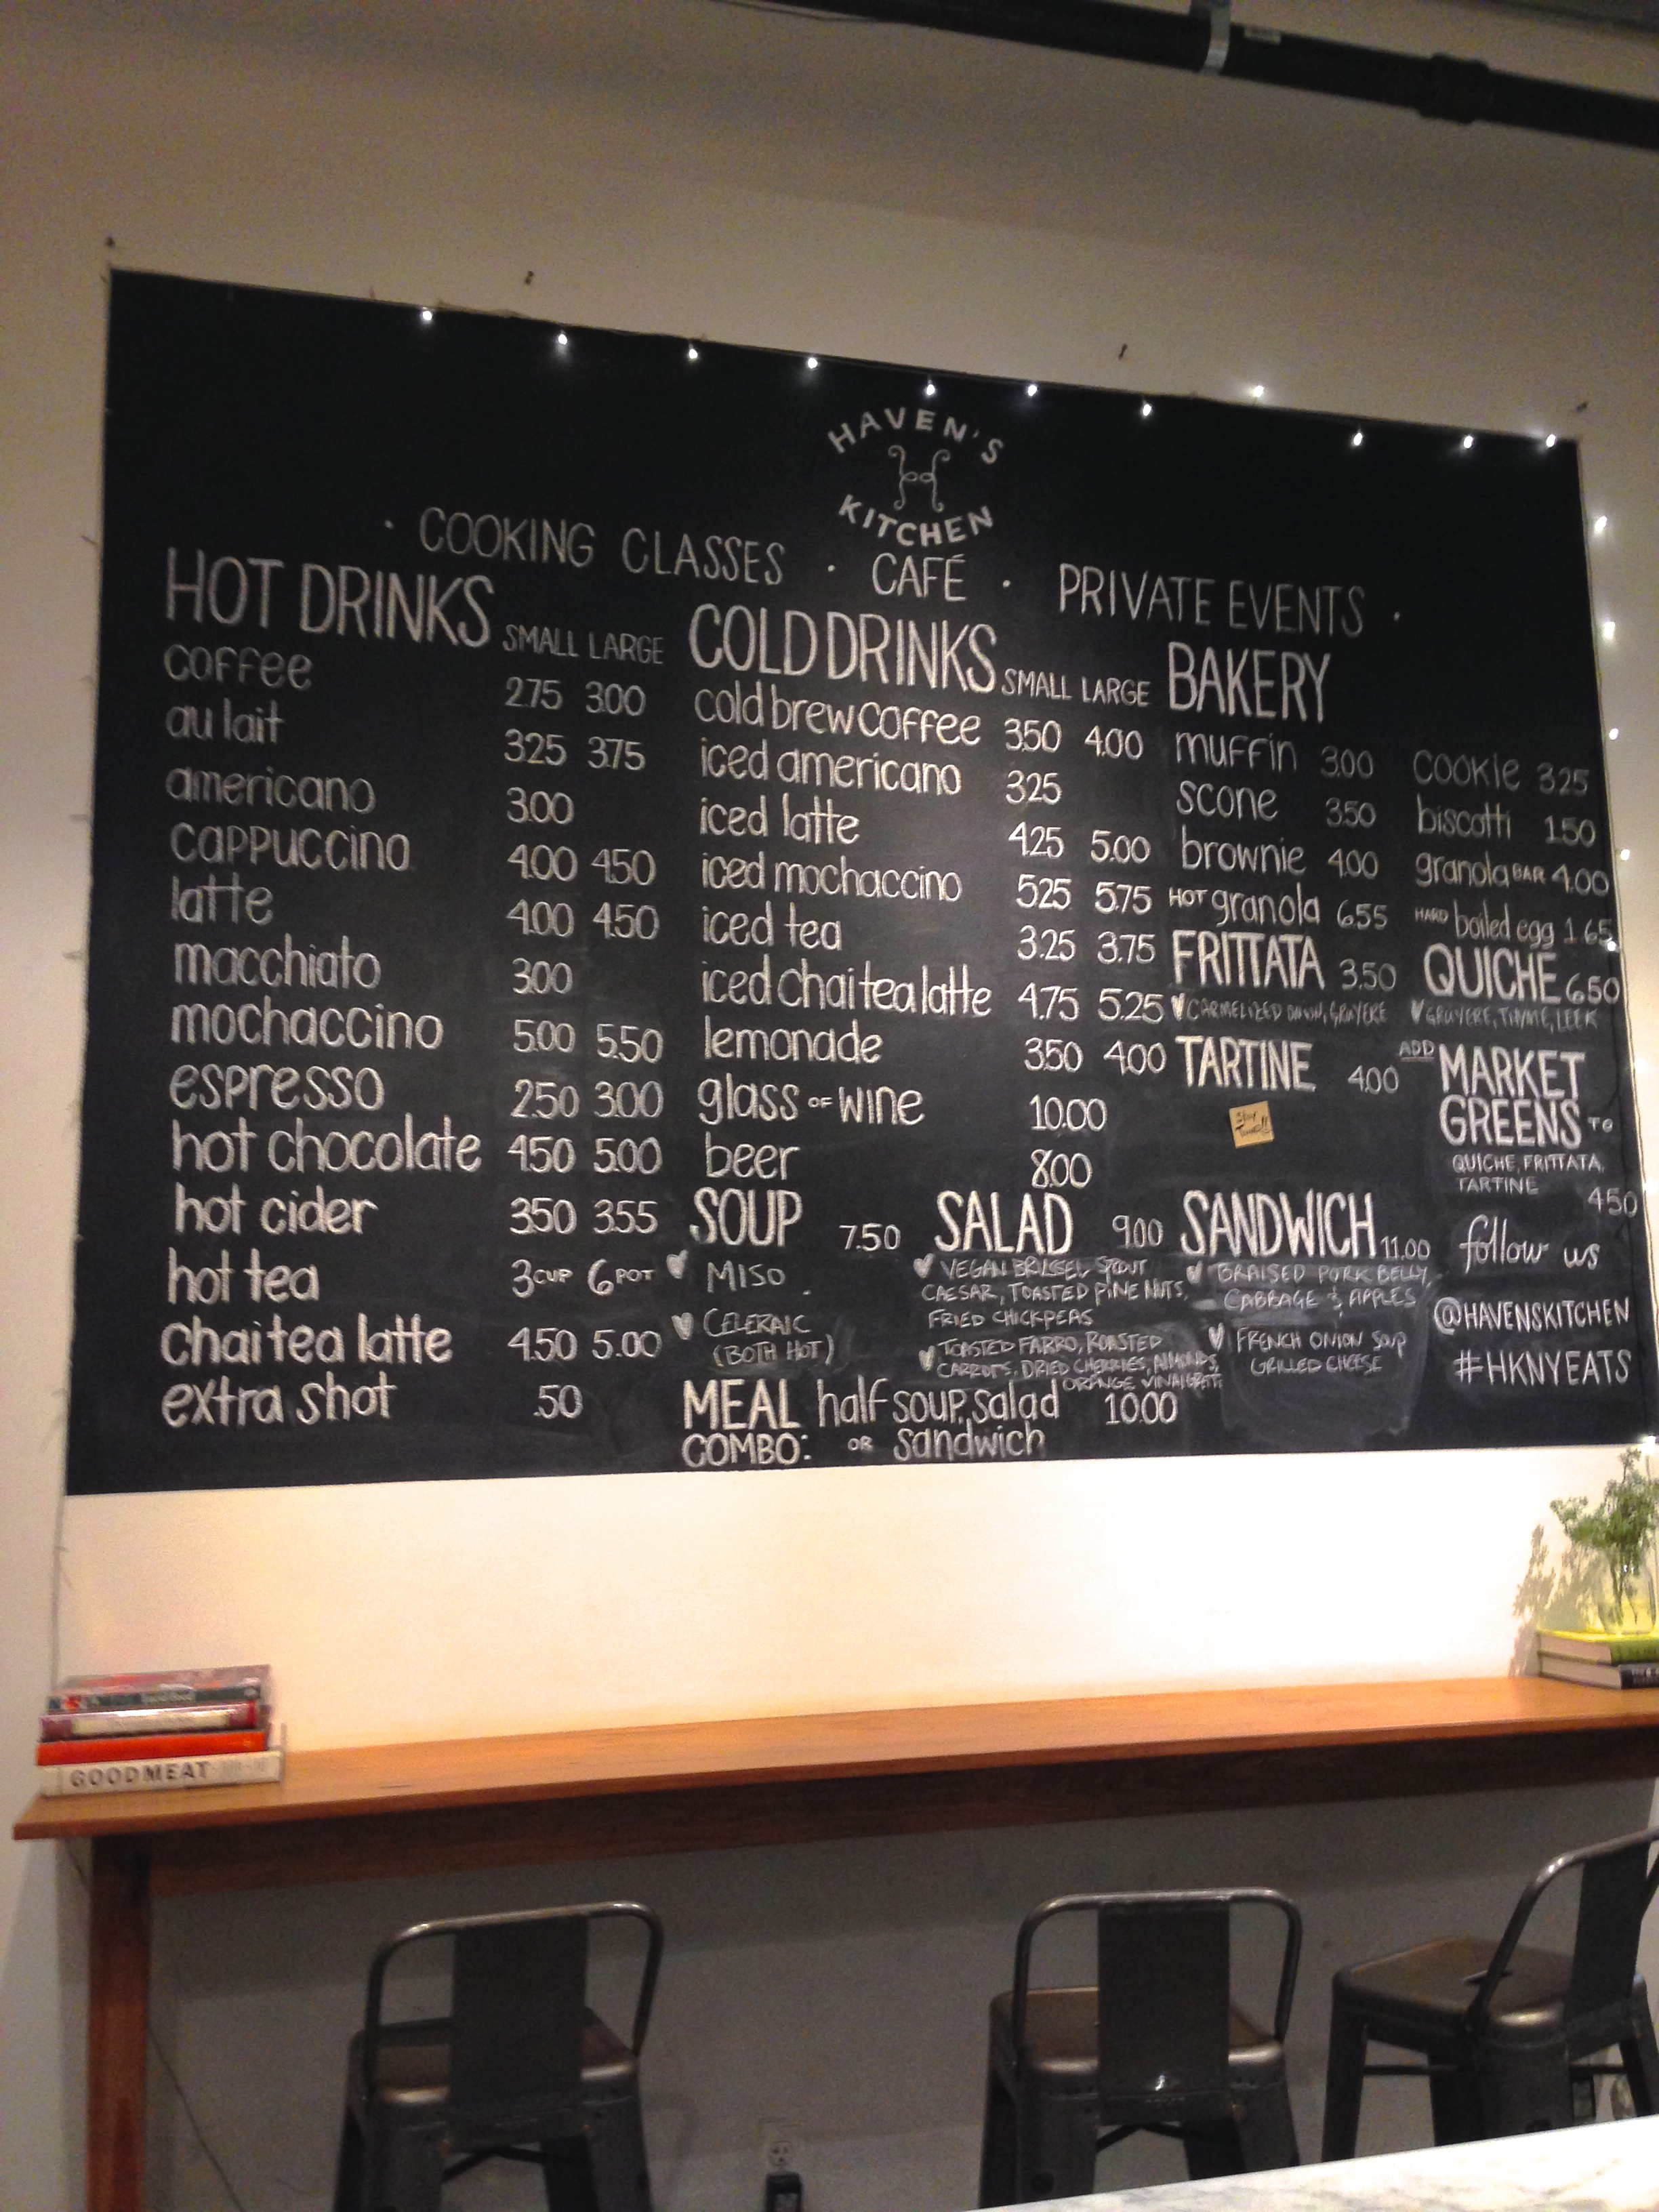 HAVEN'S
KITCHEN
· COOKING CLASSES · CAFÉ · PRIVATE EVENTS ·
HOT DRINKS SMALL LARGE
coffee 2.75 3.00
au lait 3.25 3.75
americano 3.00
cappuccino 4.00 4.50
latte 4.00 4.50
macchiato 3.00
mochaccino 5.00 5.50
espresso 2.50 3.00
hot chocolate 4.50 5.00
hot cider 3.50 3.55
hot tea 3 CUP 6 POT
chai tea latte 4.50 5.00
extra shot .50
COLD DRINKS SMALL LARGE
cold brew coffee 3.50 4.00
iced americano 3.25
iced latte 4.25 5.00
iced mochaccino 5.25 5.75
iced tea 3.25 3.75
iced chai tea latte 4.75 5.25
lemonade 3.50 4.00
glass OF wine 10.00
beer 8.00
SOUP 7.50
MISO
CELERAIC
(BOTH HOT)
SALAD 9.00
VEGAN BRUSSEL SPOUT
CAESAR, TOASTED PINE NUTS,
FRIED CHICKPEAS
TOASTED FARRO, ROASTED
CARROTS, DRIED CHERRIES, ALMONDS,
ORANGE VINAIGRETTE
SANDWICH 11.00
BRAISED PORK BELLY,
CABBAGE & APPLES
FRENCH ONION SOUP
GRILLED CHEESE
MEAL COMBO: half soup, salad 10.00
OR sandwich
BAKERY
muffin 3.00
scone 3.50
brownie 4.00
HOT granola 6.55
cookie 3.25
biscotti 1.50
granola BAR 4.00
HARD boiled egg 1.65
FRITTATA 3.50
CARMELIZED ONION, GRUYERE
QUICHE 6.50
GRUYERE, THYME, LEEK
TARTINE 4.00
Stay
Tuned!!
ADD MARKET
GREENS TO
QUICHE, FRITTATA,
TARTINE 4.50
follow us
@HAVENSKITCHEN
#HKNYEATS
GOOD MEAT